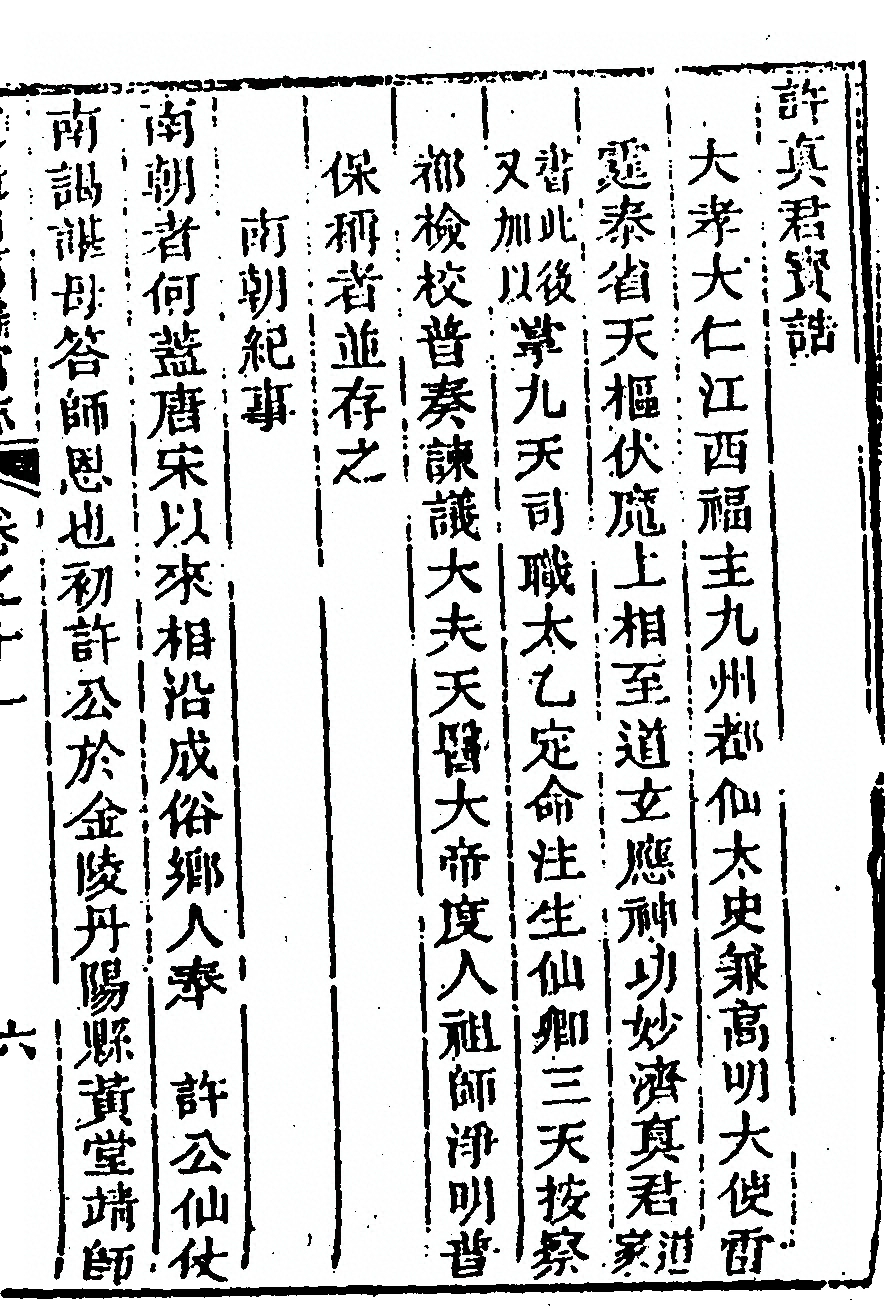 許真君寳誥
大孝大仁江西福主九州都仙太史兼高明大使雷
霆泰省天樞伏魔上相至道玄應神功妙濟真君道家
書此後又加以掌九天司職太乙定命注生仙卿三天按察
都檢校普奏諫議大夫天醫大帝度人祖師淨明普
保稱者並存之
南朝紀事
南朝者何蓋唐宋以來相沿成俗鄉人奉　許公仙仗
南謁諶母答師恩也初許公於金陵丹陽縣黃堂靖師
卷之十一
六